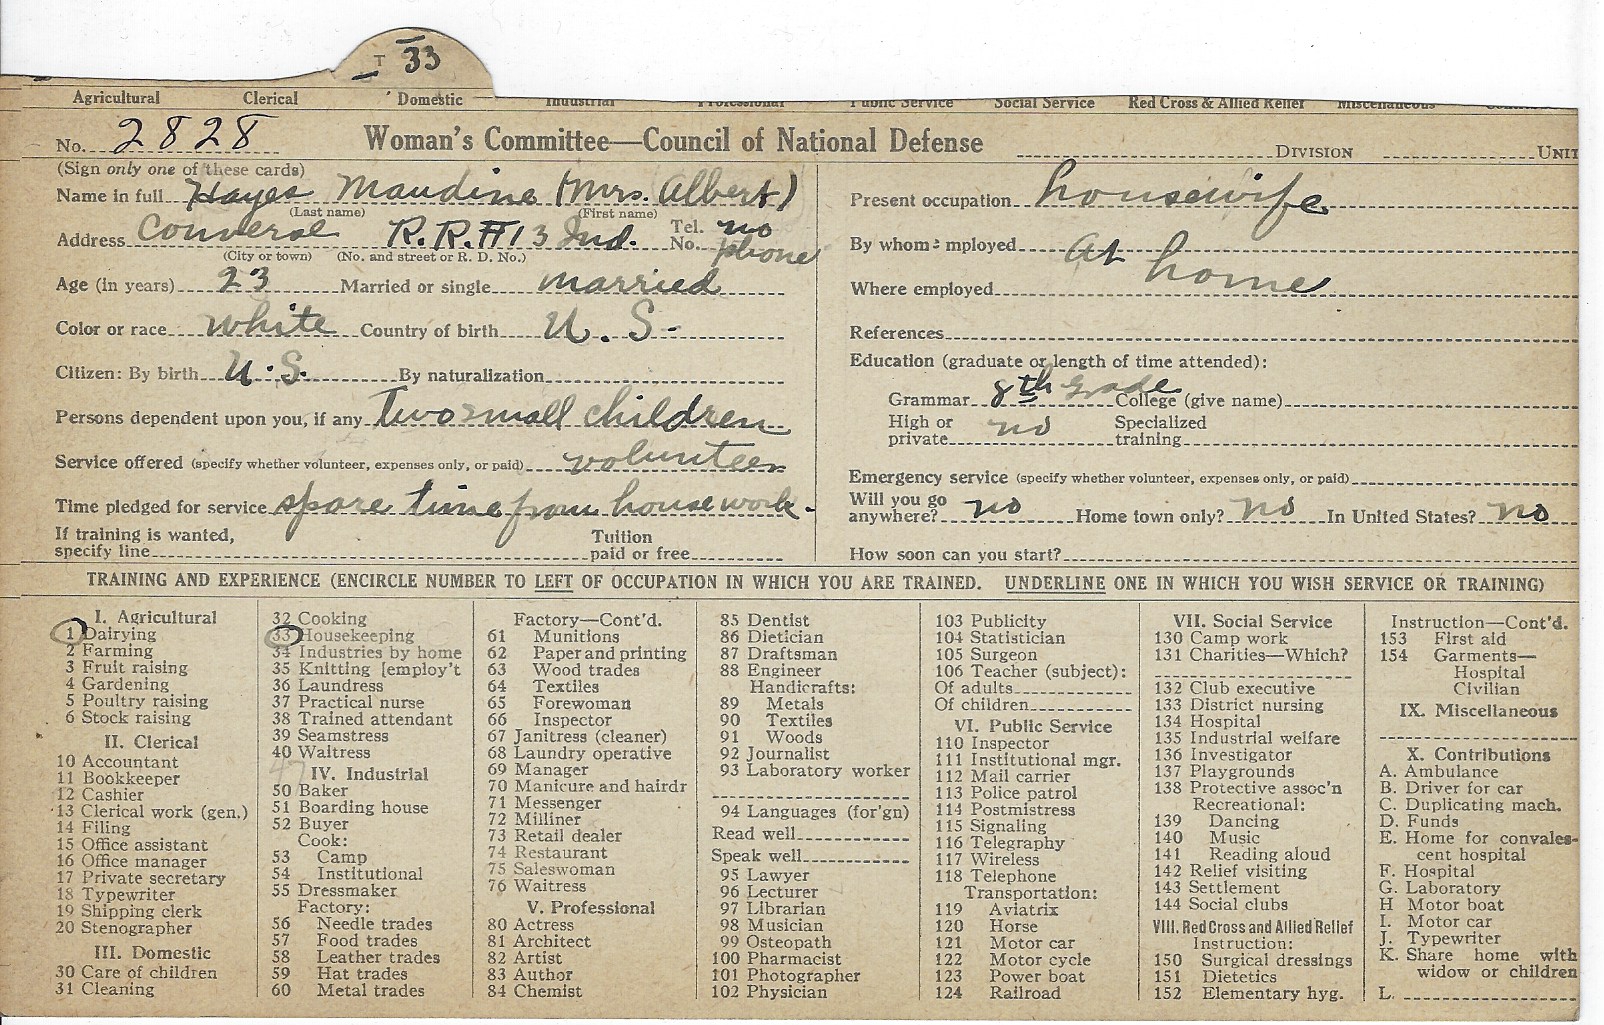 T 33
Agricultural Clerical Domestic Industrial Professional Public Service Social Service Red Cross & Allied Relief Miscellaneous
No. 2828 Woman's Committee—Council of National Defense DIVISION UNIT
(Sign only one of these cards)
Name in full Hayes Maudine (Mrs. Albert)
(Last name) (First name)
Address Converse R.R.#13 Ind. Tel. No. no phone
(City or town) (No. and street or R. D. No.)
Age (in years) 23 Married or single married
Color or race white Country of birth U. S-
Citizen: By birth U.S. By naturalization
Persons dependent upon you, if any Two small children
Service offered (specify whether volunteer, expenses only, or paid) volunteer
Time pledged for service spare time from house work.
If training is wanted, Tuition
specify line paid or free
Present occupation housewife
By whom employed At home
Where employed
References
Education (graduate or length of time attended):
Grammar 8th grade College (give name)
High or Specialized
private no training
Emergency service (specify whether volunteer, expenses only, or paid)
Will you go
anywhere? no Home town only? no In United States? no
How soon can you start?
TRAINING AND EXPERIENCE (ENCIRCLE NUMBER TO LEFT OF OCCUPATION IN WHICH YOU ARE TRAINED. UNDERLINE ONE IN WHICH YOU WISH SERVICE OR TRAINING)
I. Agricultural
1 Dairying
2 Farming
3 Fruit raising
4 Gardening
5 Poultry raising
6 Stock raising
II. Clerical
10 Accountant
11 Bookkeeper
12 Cashier
13 Clerical work (gen.)
14 Filing
15 Office assistant
16 Office manager
17 Private secretary
18 Typewriter
19 Shipping clerk
20 Stenographer
III. Domestic
30 Care of children
31 Cleaning
32 Cooking
33 Housekeeping
34 Industries by home
35 Knitting [employ't
36 Laundress
37 Practical nurse
38 Trained attendant
39 Seamstress
40 Waitress
47
IV. Industrial
50 Baker
51 Boarding house
52 Buyer
Cook:
53 Camp
54 Institutional
55 Dressmaker
Factory:
56 Needle trades
57 Food trades
58 Leather trades
59 Hat trades
60 Metal trades
Factory—Cont'd.
61 Munitions
62 Paper and printing
63 Wood trades
64 Textiles
65 Forewoman
66 Inspector
67 Janitress (cleaner)
68 Laundry operative
69 Manager
70 Manicure and hairdr
71 Messenger
72 Milliner
73 Retail dealer
74 Restaurant
75 Saleswoman
76 Waitress
V. Professional
80 Actress
81 Architect
82 Artist
83 Author
84 Chemist
85 Dentist
86 Dietician
87 Draftsman
88 Engineer
Handicrafts:
89 Metals
90 Textiles
91 Woods
92 Journalist
93 Laboratory worker
94 Languages (for'gn)
Read well
Speak well
95 Lawyer
96 Lecturer
97 Librarian
98 Musician
99 Osteopath
100 Pharmacist
101 Photographer
102 Physician
103 Publicity
104 Statistician
105 Surgeon
106 Teacher (subject):
Of adults
Of children
VI. Public Service
110 Inspector
111 Institutional mgr.
112 Mail carrier
113 Police patrol
114 Postmistress
115 Signaling
116 Telegraphy
117 Wireless
118 Telephone
Transportation:
119 Aviatrix
120 Horse
121 Motor car
122 Motor cycle
123 Power boat
124 Railroad
VII. Social Service
130 Camp work
131 Charities—Which?
132 Club executive
133 District nursing
134 Hospital
135 Industrial welfare
136 Investigator
137 Playgrounds
138 Protective assoc'n
Recreational:
139 Dancing
140 Music
141 Reading aloud
142 Relief visiting
143 Settlement
144 Social clubs
VIII. Red Cross and Allied Relief
Instruction:
150 Surgical dressings
151 Dietetics
152 Elementary hyg.
Instruction—Cont'd.
153 First aid
154 Garments—
Hospital
Civilian
IX. Miscellaneous
X. Contributions
A. Ambulance
B. Driver for car
C. Duplicating mach.
D. Funds
E. Home for convales-
cent hospital
F. Hospital
G. Laboratory
H Motor boat
I. Motor car
J. Typewriter
K. Share home with
widow or children
L.